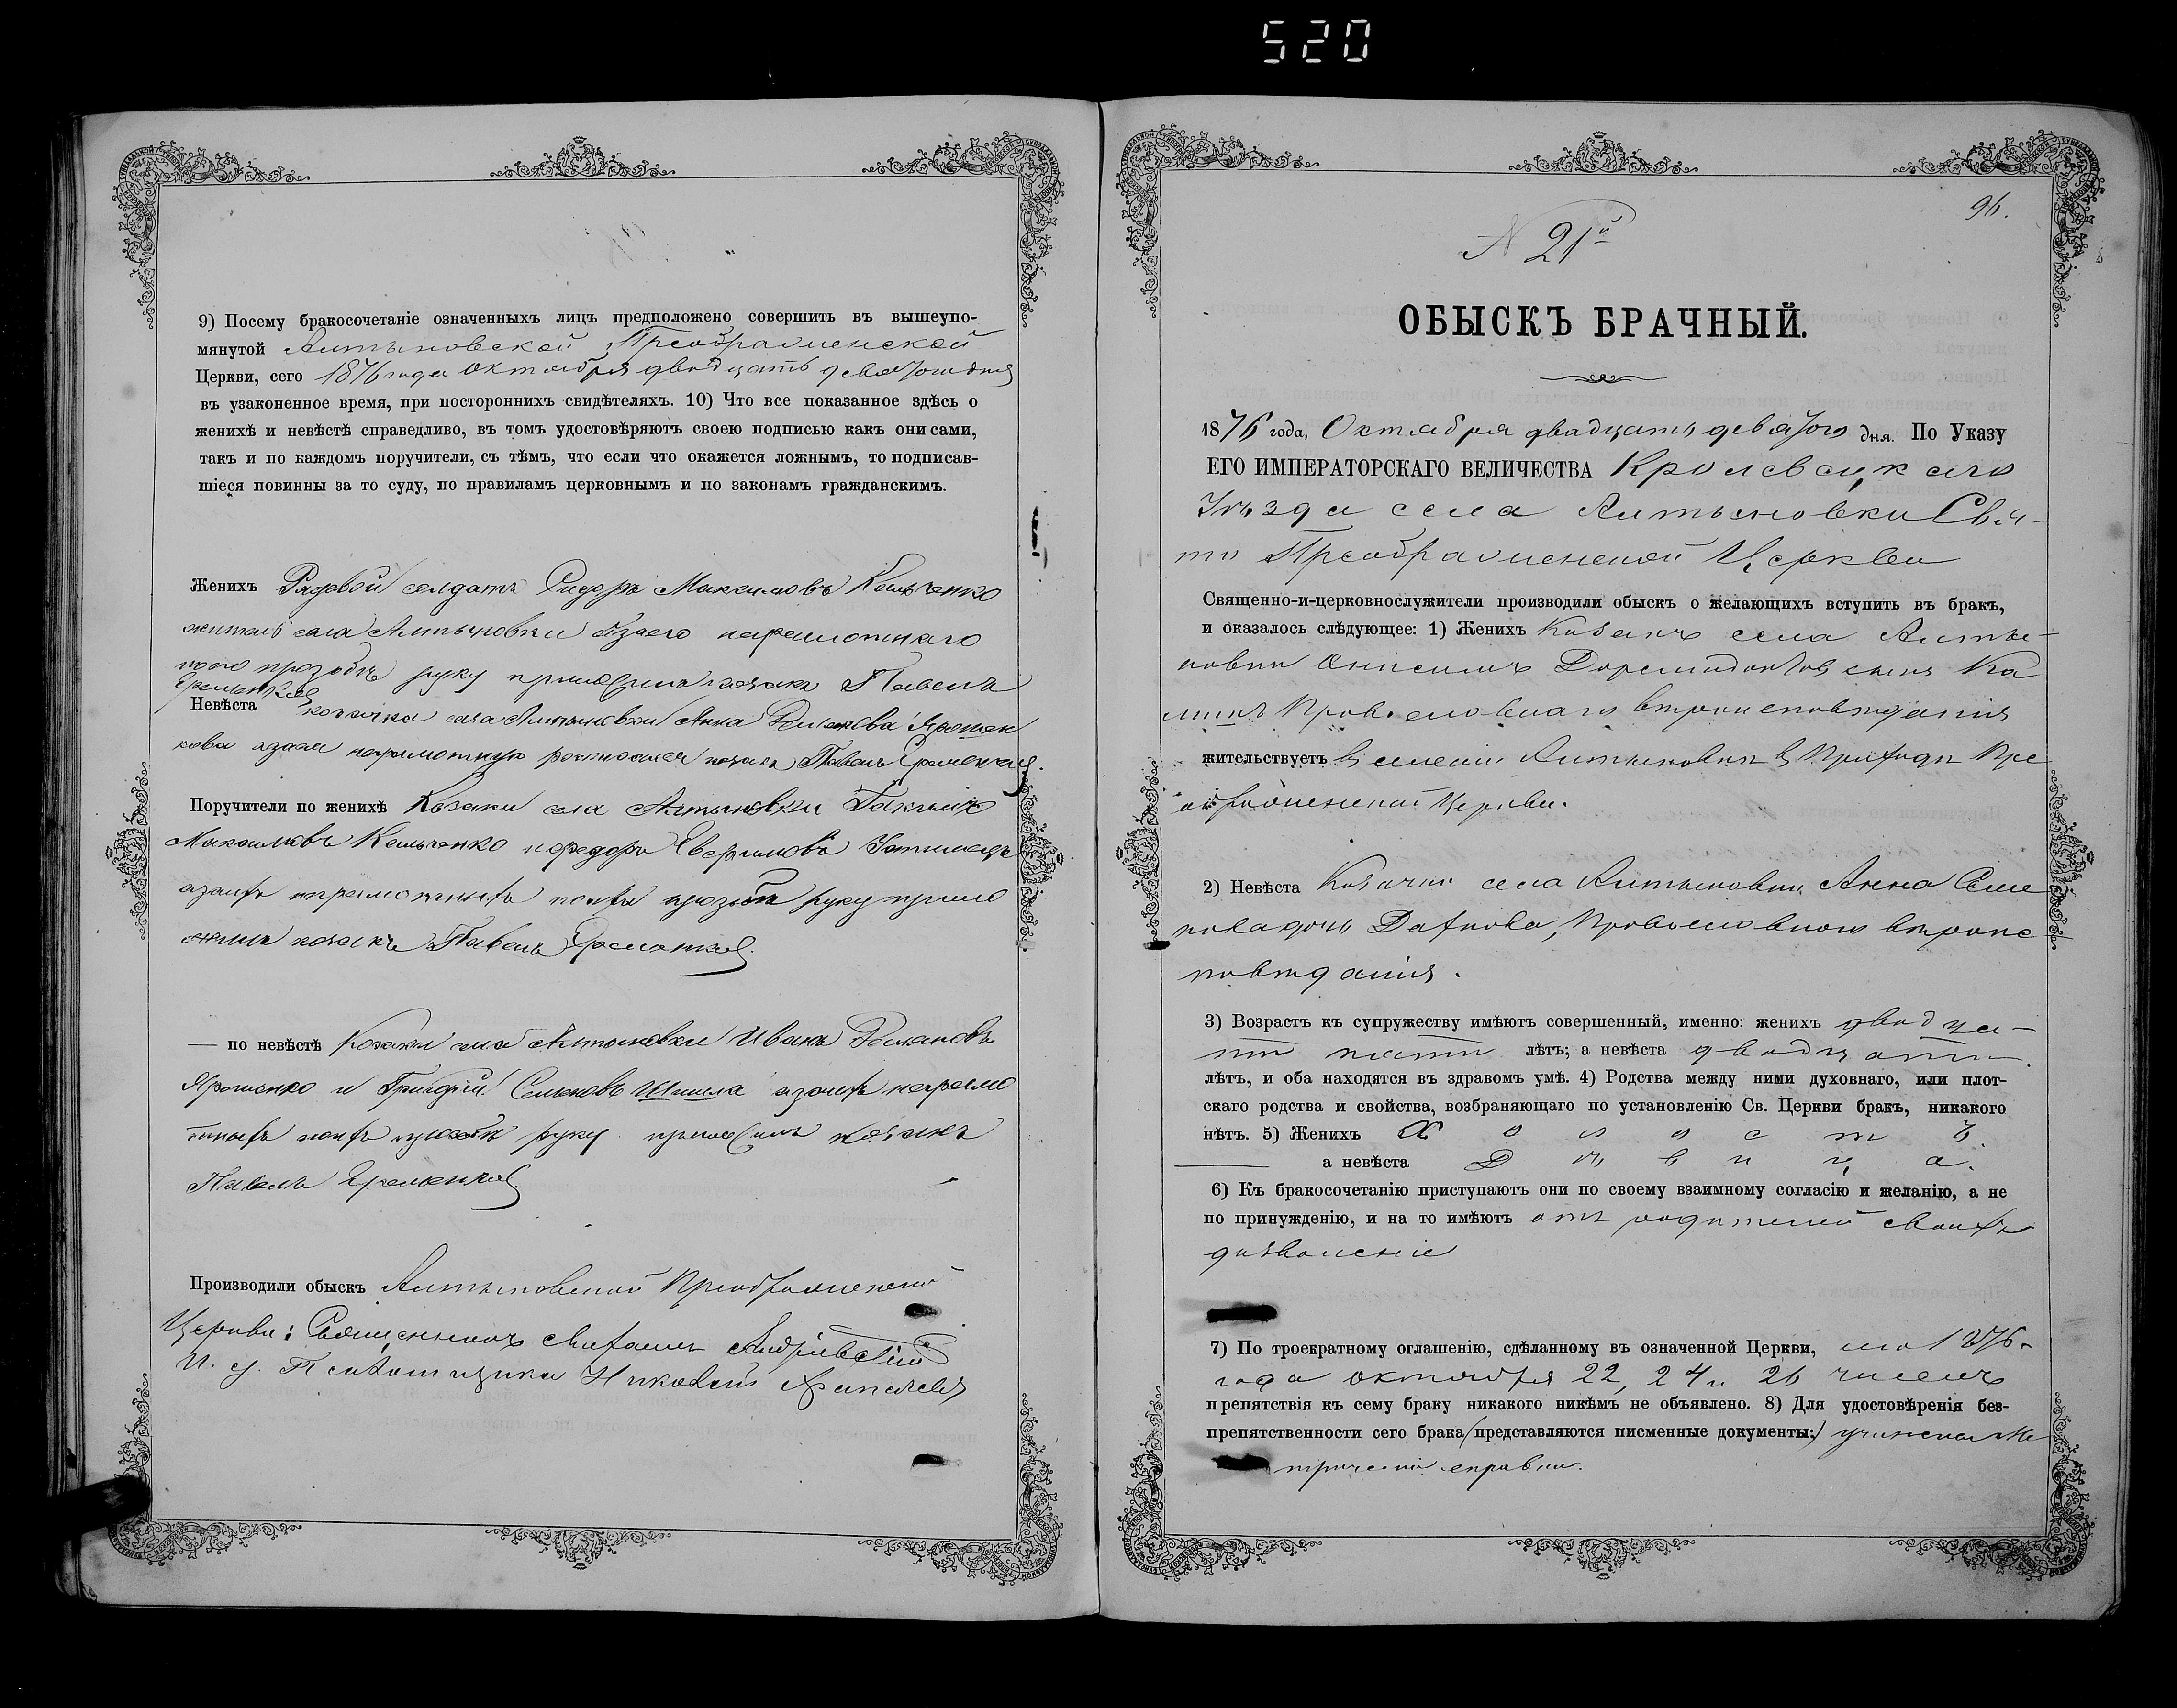 520
9) Посему бракосочетаніе означенныхъ лицъ предположено совершить въ вышеупо-
мянутой Алтыновской Преображенской
Церкви, сего 1876 года октября двадцать девятого дня
въ узаконенное время, при постороннихъ свидѣтеляхъ. 10) Что все показанное здѣсь о
женихѣ и невѣстѣ справедливо, въ томъ удостовѣряютъ своею подписью какъ они сами,
такъ и по каждомъ поручители, съ тѣмъ, что если что окажется ложнымъ, то подписав-
шіеся повинны за то суду, по правиламъ церковнымъ и по законамъ гражданскимъ.
Женихъ Рядовой солдатъ Сидоръ Максимовъ Кольченко
житель села Алтыновки
руку приложилъ козакъ Павелъ
Невѣста козачка села Алтыновки Анна Романова Ярошен
кова козакъ Павелъ
Поручители по женихѣ Козаки села Алтыновки
Максимовъ Кольченко
руку прило
жилъ козакъ Павелъ
— по невѣстѣ Козаки села Алтыновки Иванъ Романовъ
Ярошенко и Григорій Семеновъ Шишла
руку приложилъ козакъ
Павелъ
Производили обыскъ Алтыновской Преображенской
Церкви: Священникъ
И. д. Псаломщика Николай
96.
N 21й
ОБЫСКЪ БРАЧНЫЙ.
1876 года, Октября двадцать девятого дня. По Указу
ЕГО ИМПЕРАТОРСКАГО ВЕЛИЧЕСТВА Кролевецкаго
Уѣзда села Алтыновки Свя-
то Преображенской Церкви
Священно-и-церковнослужители производили обыскъ о желающихъ вступить въ бракъ,
и оказалось слѣдующее: 1) Женихъ Козакъ села Алты-
новки Онисимъ сынъ Ка
Православнаго вѣроисповѣданія
жительствуетъ въ селеніи Алтыновки въ Приходѣ Пре
ображенской Церкви.
2) Невѣста Козачка села Алтыновки Анна Семе
нова дочь Дахнова, Православного вѣроис-
повѣданія.
3) Возрастъ къ супружеству имѣютъ совершенный, именно: женихъ двадца-
ти пяти лѣтъ; а невѣста двадцати
лѣтъ, и оба находятся въ здравомъ умѣ. 4) Родства между ними духовнаго, или плот-
скаго родства и свойства, возбраняющаго по установленію Св. Церкви бракъ, никакого
нѣтъ. 5) Женихъ Холостъ.
а невѣста Дѣвица.
6) Къ бракосочетанію приступаютъ они по своему взаимному согласію и желанію, а не
по принужденію, и на то имѣютъ отъ родителей своихъ
дозволеніе
7) По троекратному оглашенію, сдѣланному въ означенной Церкви, сего 1876-
года октября 22, 24 и 26 числъ
препятствія къ сему браку никакого никѣмъ не объявлено. 8) Для удостовѣренія без-
препятственности сего брака (представляются писменные документы;) учинена Ме
трическая справка.